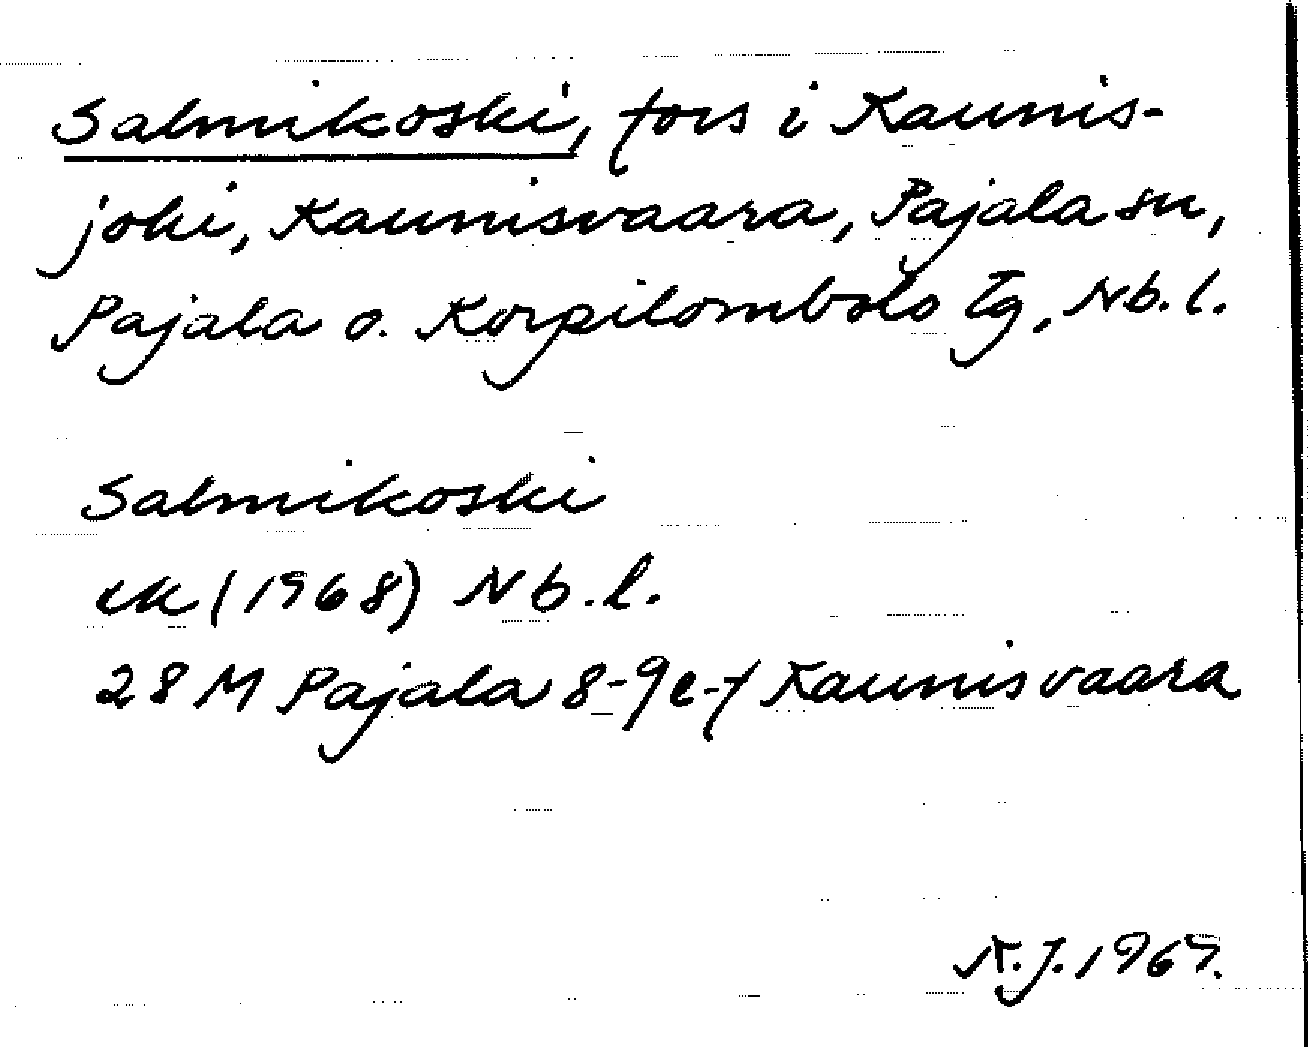 Salmikoski, fors i Kaunis-
joki, Kaunisvaara, Pajala sn,
Pajala o. Korpilombolo Tg, Nb. l.
Salmikoski
ek (1968) Nb.l.
28 M Pajala 8-9 e-f Kaunisvaara
N.J. 1969.